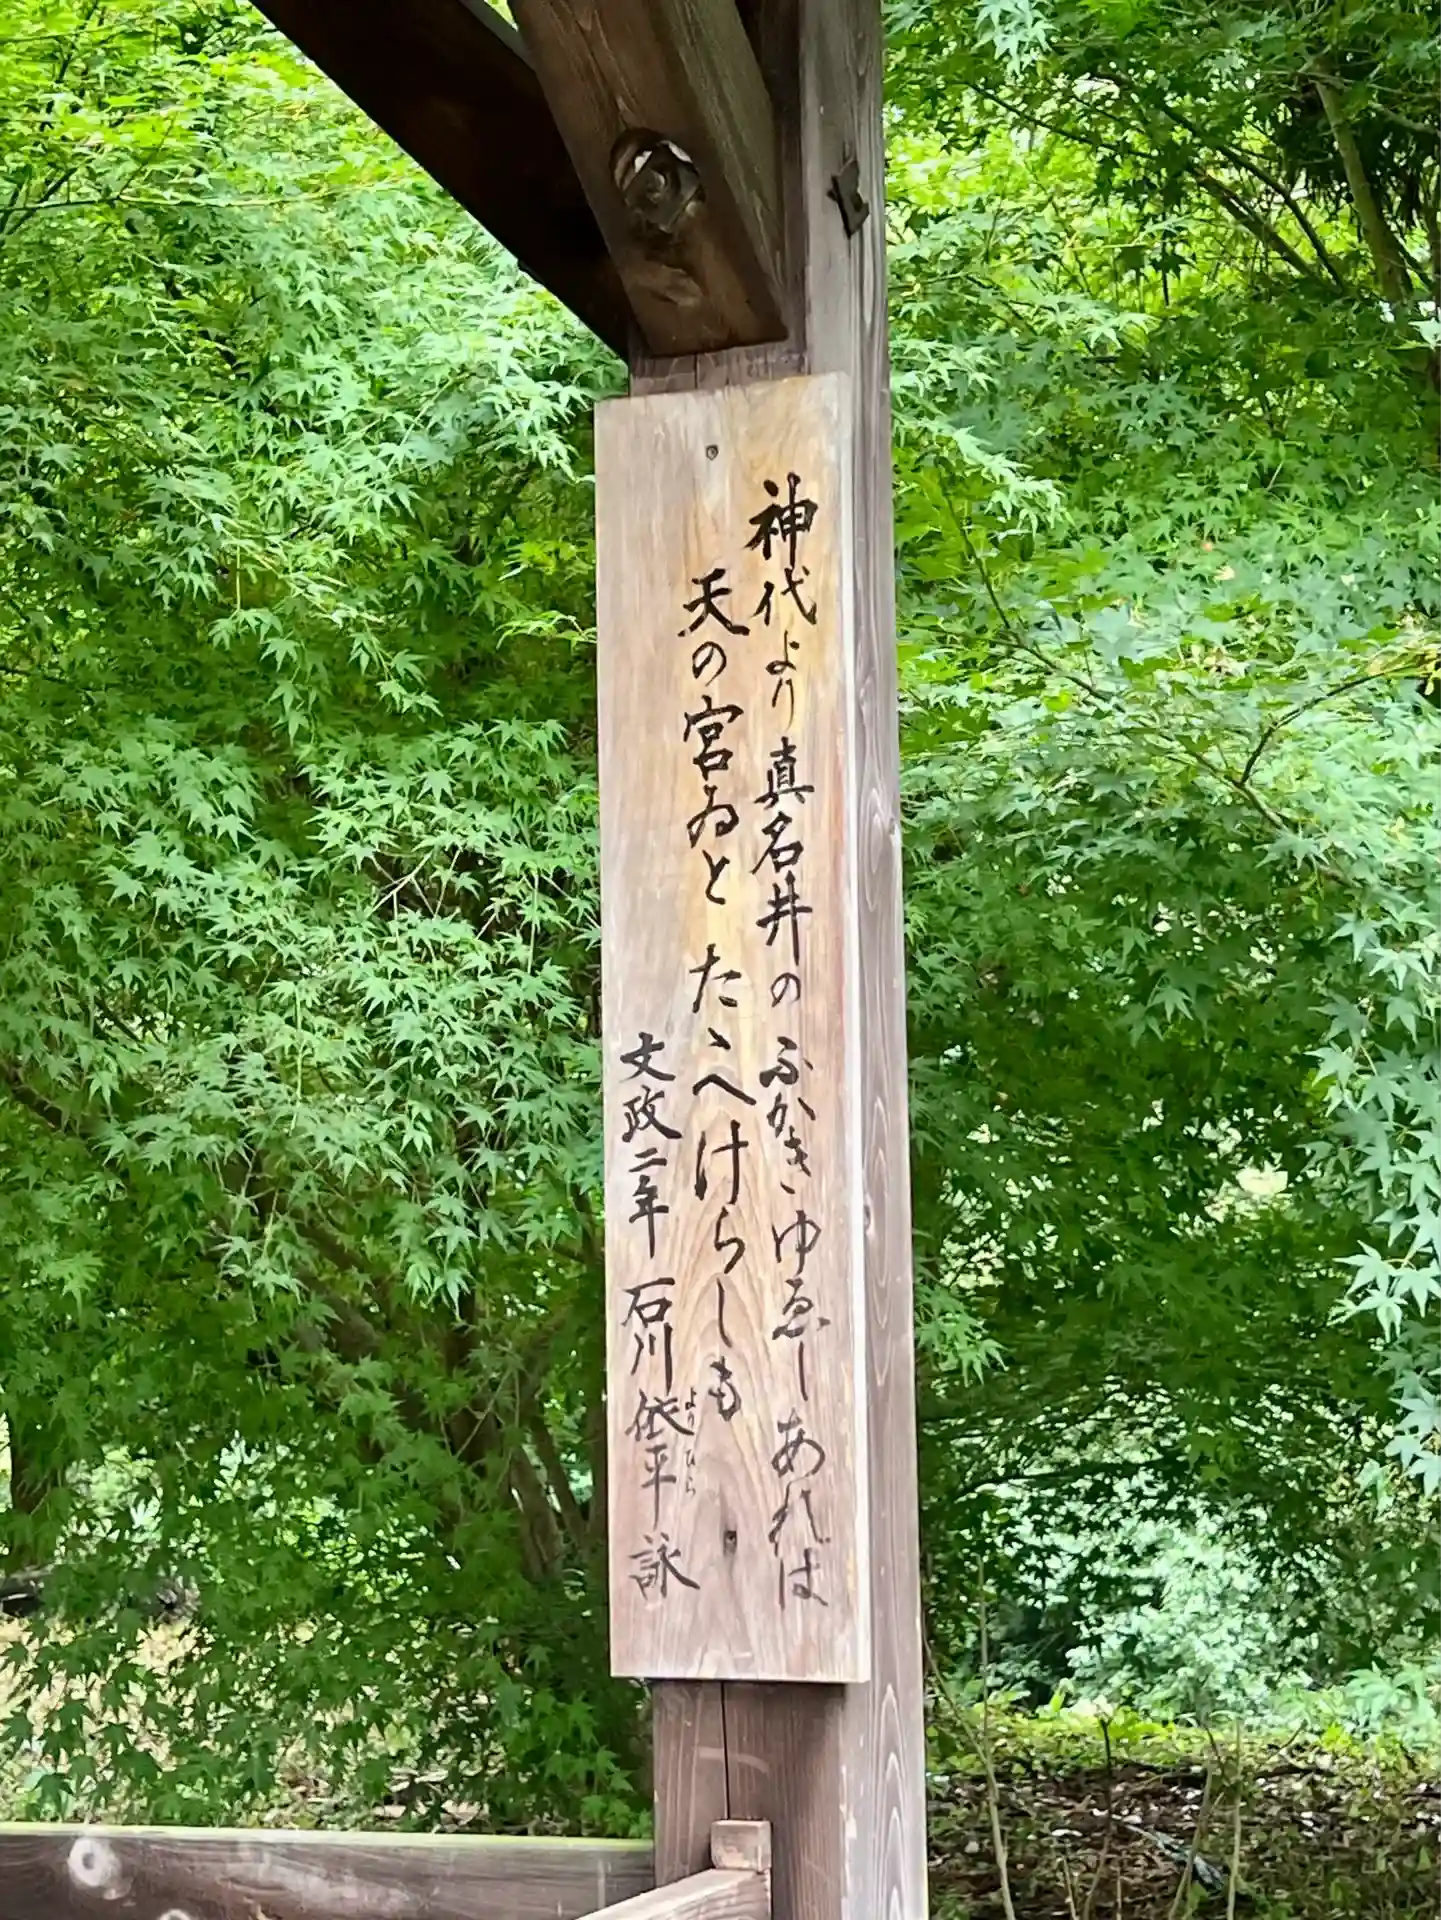 神代より真名井のふかきゆゑしあれは
天の宮ゐとたゝへけらしも
文政二年 石川依平詠
よりひら